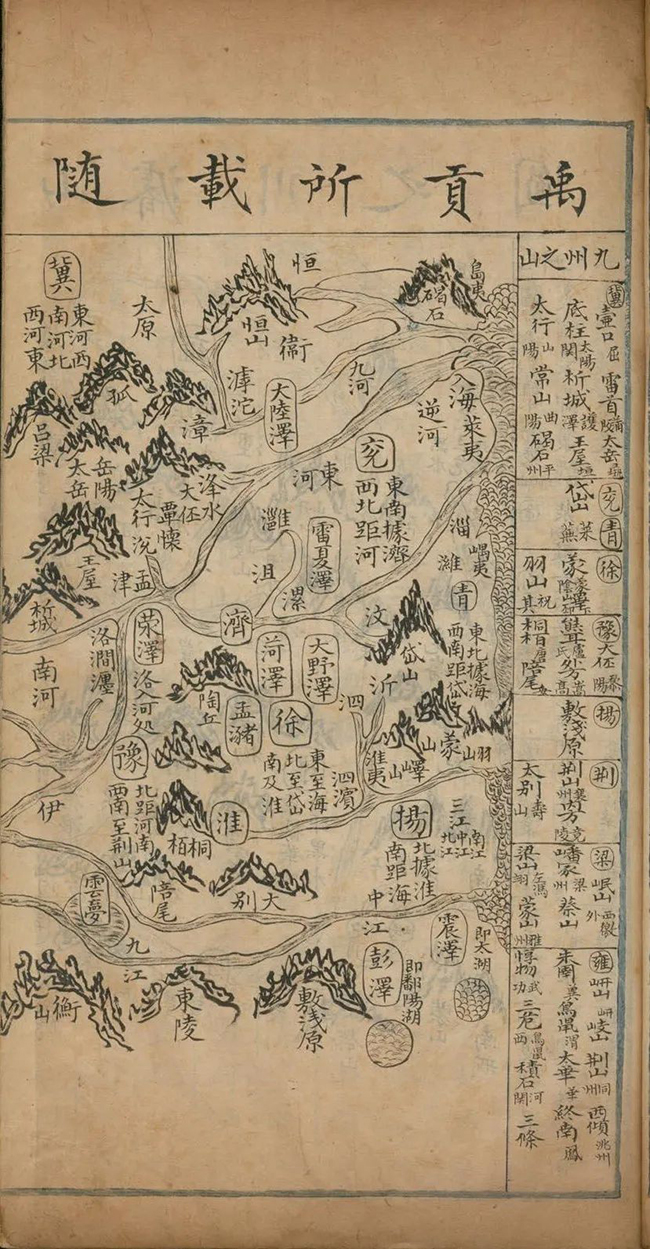 禹貢所載随
九州之山
冀
壺口
雷首
太岳
底柱
析城
王屋
太行山
常山
碣石
兗
青
岱山
徐
蒙
羽山
豫
大伾
熊耳
外方
桐柏
陪尾
揚
敷淺原
荆
荆山
太别山
梁
岷山
嶓冢
蔡山
梁山
蒙山
雍
岍山
岐山
荆山
西傾
朱圉
鳥鼠
太華
終南
惇物
三危
積石
三條
島夷
碣石
恒
恒山
衛
滹沱
九河
大陸澤
逆河
入海
萊夷
冀
東河西
南河北
西河東
太原
狐
呂梁
太岳
岳陽
漳
洚水
大伾
覃懷
太行
沇
王屋
析城
孟津
東河
兗
東南據濟
西北距河
雷夏澤
沮
漯
淄
濰
嵎夷
青
東北據海
西南距岱
汶
岱山
濟
菏澤
大野澤
滎澤
洛入河処
洛澗瀍
南河
陶丘
孟瀦
沂
泗
徐
東至海
北至岱
南及淮
泗濱
淮夷
嶧山
蒙山
羽山
豫
北距河南
西南至荆山
伊
桐栢
淮
揚
北據淮
南距海
三江
南江
中江
北江
陪尾
大别
雲夢
九江
中江
震澤
即太湖
彭澤
即鄱陽湖
衡山
東陵
敷浅原